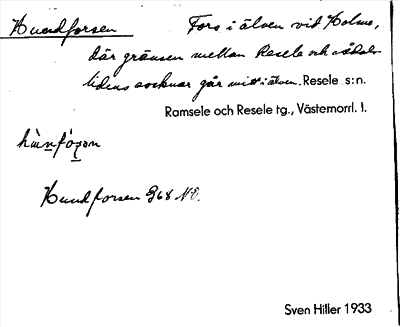 Hundforsen
Fors i älven vid Holme,
där gränsen mellan Resele och Ådals-
lidens socknar går mitt i älven. Resele s:n.
Ramsele och Resele tg., Västernorrl. l.
Hundforsen G68 NE.
Sven Hiller 1933